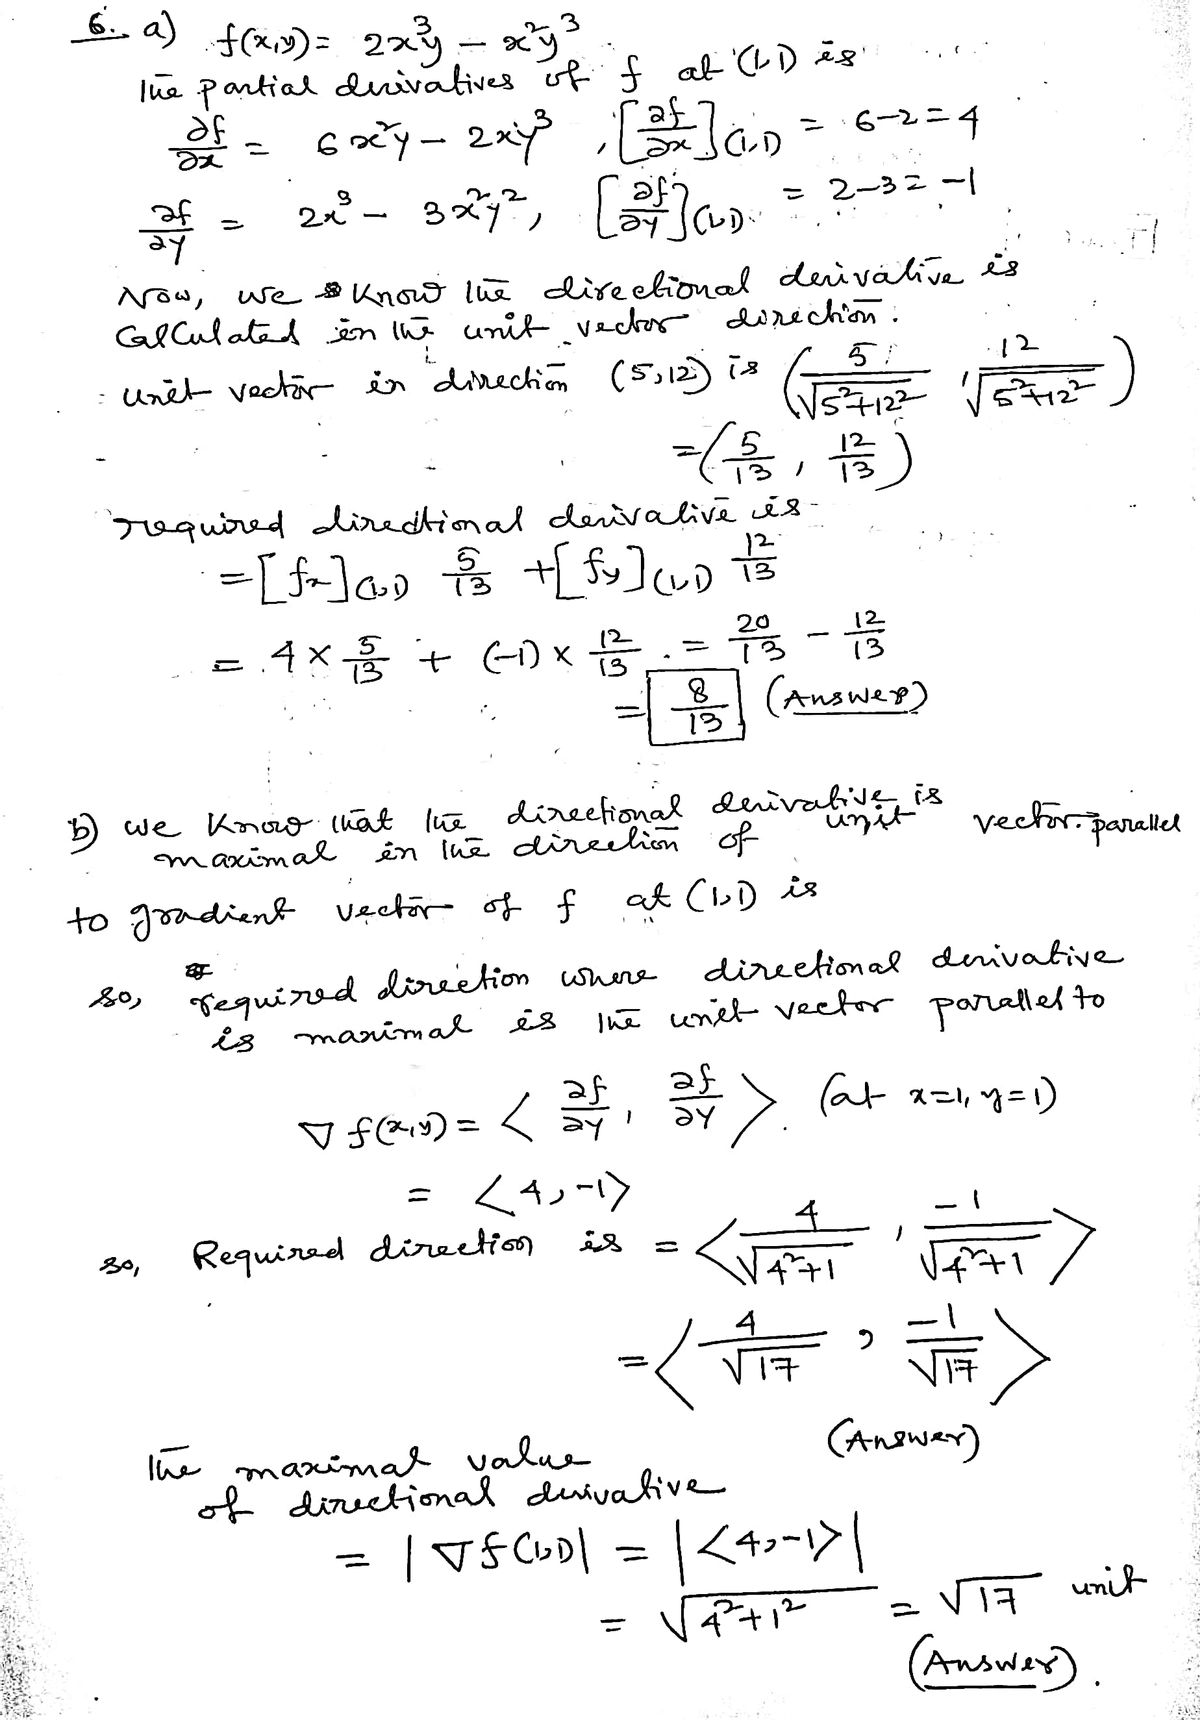 6. a) f(x,y) = 2x³y – x²y³
The partial derivatives of f at (1,1) is
∂f/∂x = 6x²y – 2xy³, [∂f/∂x](1,1) = 6–2=4
∂f/∂y = 2x³ – 3x²y², [∂f/∂y](1,1) = 2–3= –1
Now, we know the directional derivative is
Calculated in the unit vector direction.
unit vector in direction (5,12) is (5/√5²+12², 12/√5²+12²)
=(5/13, 12/13)
required directional derivative is
=[fx](1,1) 5/13 +[fy](1,1) 12/13
= 4 × 5/13 + (–1) × 12/13 = 20/13 – 12/13
= 8/13 (Answer)
b) we know that the directional derivative is
maximal in the direction of unit vector parallel
to gradient vector of f at (1,1) is
so, required direction where directional derivative
is maximal is the unit vector parallel to
∇f(x,y) = < ∂f/∂y, ∂f/∂y >. (at x=1, y=1)
= <4, –1>
so, Required direction is = <4/√4²+1, –1/√4²+1>
= <4/√17, –1/√17>
(Answer)
The maximal value
of directional derivative
= |∇f(1,1)| = |<4,–1>|
= √4²+1² = √17 unit
(Answer).